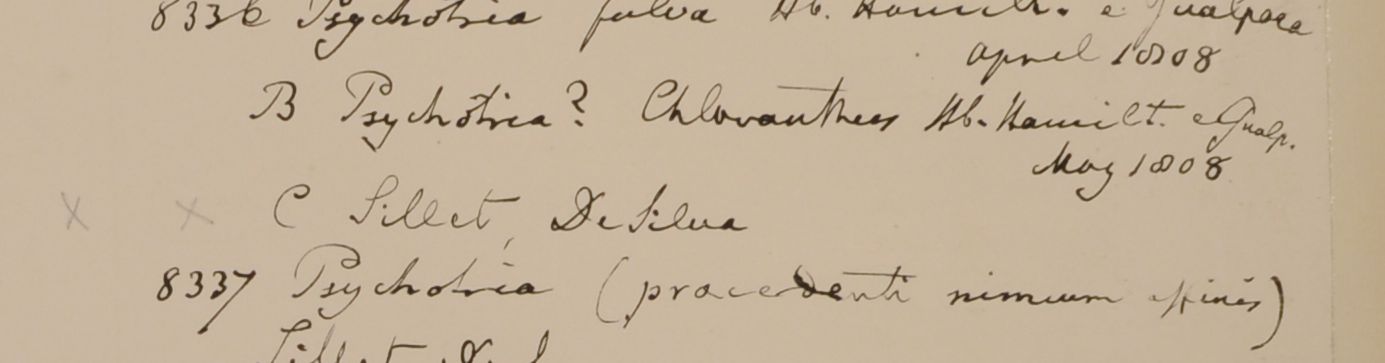 8336 Psychotria fulva Hb. Hamilt. e Gualpara
april 1808
B Psychotria? Chloranthus Hb. Hamilt. e Gualp.
May 1808
x x C Sillet, De Silva
8337 Psychotria (procedenti nimium affinis)
Sillet